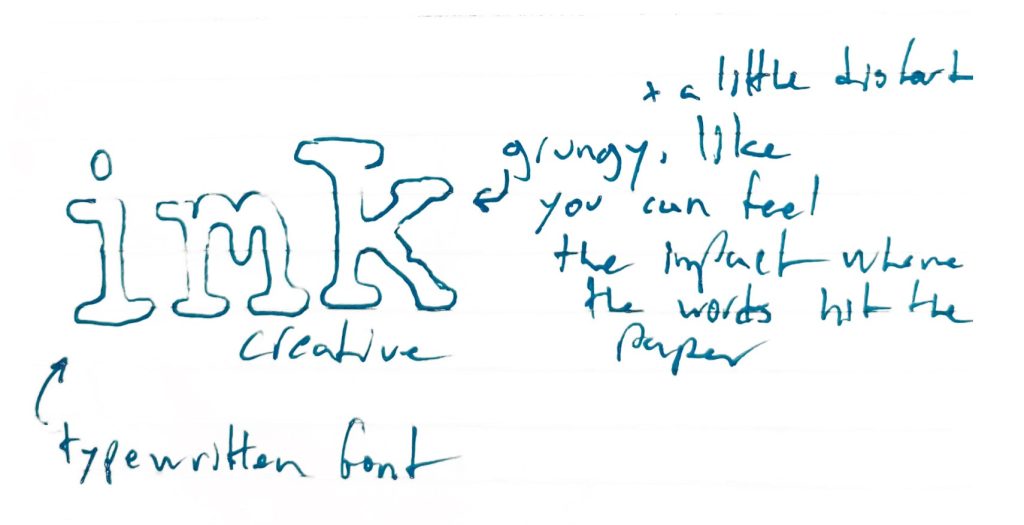 + a little distort
grungy, like
you can feel
the impact where
the words hit the
paper
imk
creative
typewritten font